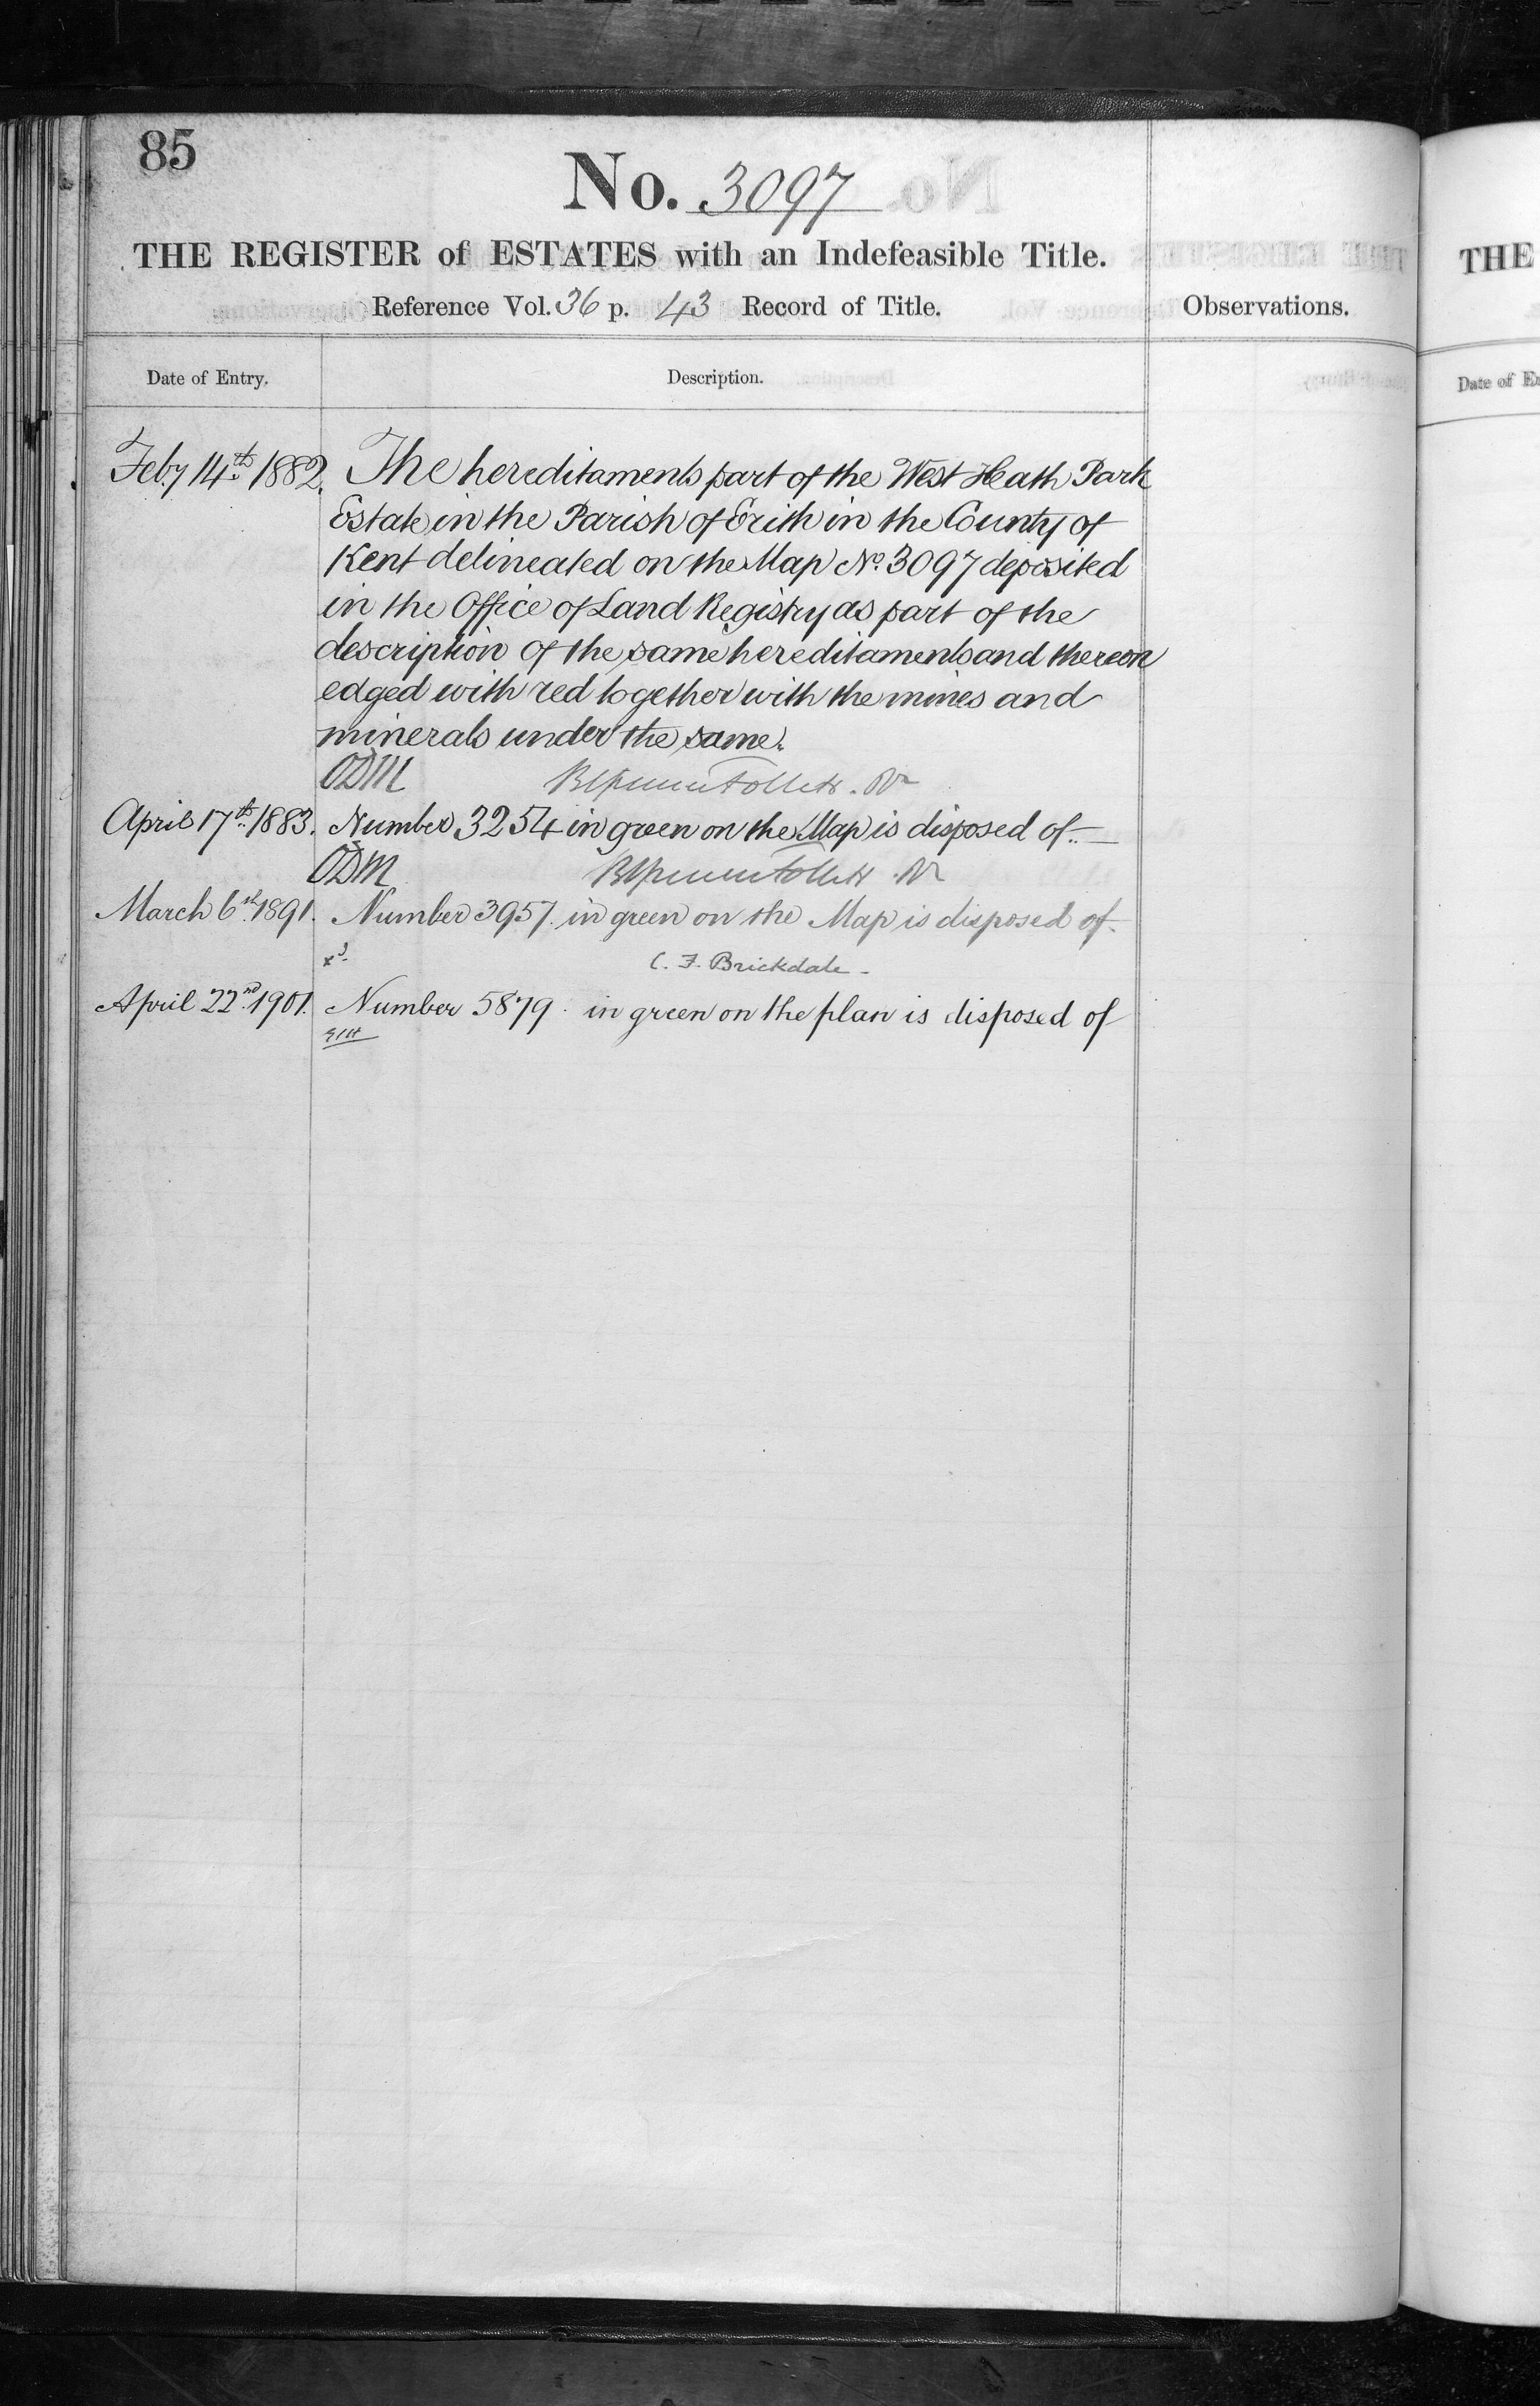 85
No. 3097
THE REGISTER of ESTATES with an Indefeasible Title.
Reference Vol. 36 p. 43 Record of Title.
Observations.
Date of Entry.
Description.
Feby 14th 1882. The hereditaments part of the West Heath Park
Estate in the Parish of Erith in the County of
Kent delineated on the Map No. 3097 deposited
in the Office of Land Registry as part of the
description of the same hereditaments and thereon
edged with red together with the mines and
minerals under the same.
ODM
April 17th 1883. Number 3254 in green on the Map is disposed of.
ODM
March 6th 1891. Number 3957. in green on the Map is disposed of.
C. F. Brickdale
April 22nd 1901. Number 5879. in green on the plan is disposed of
THE
Date of